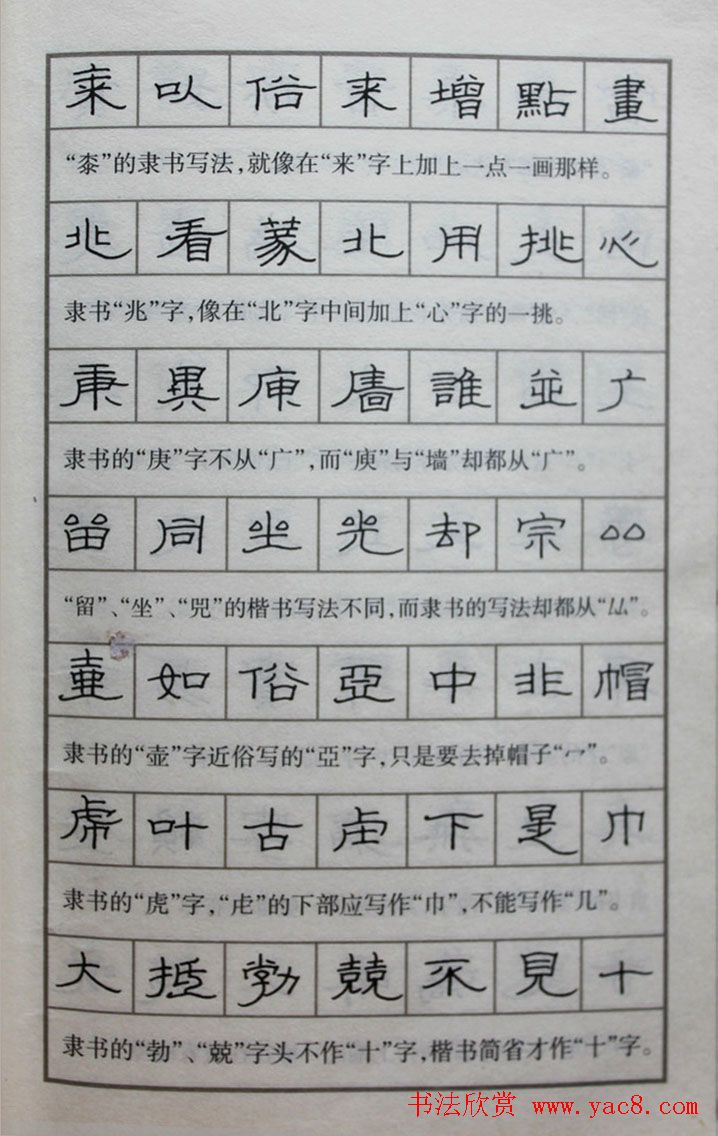 桼㕥俗来增點畫
“桼”的隶书写法，就像在“来”字上加上一点一画那样。
兆看蒙北用挑心
隶书“兆”字，像在“北”字中间加上“心”字的一挑。
庚異庾廧誰並广
隶书的“庚”字不从“广”，而“庾”与“墙”却都从“广”。
留同坐光却宗厸
“留”、“坐”、“咒”的楷书写法不同，而隶书的写法却都从“厸”。
壷如俗亞中非帽
隶书的“壶”字近俗写的“亞”字，只是要去掉帽子“冖”。
虎叶古虍下是巾
隶书的“虎”字，“虍”的下部应写作“巾”，不能写作“几”。
大抵勃兢不見十
隶书的“勃”、“兢”字头不作“十”字，楷书简省才作“十”字。
书法欣赏 www.yac8.com